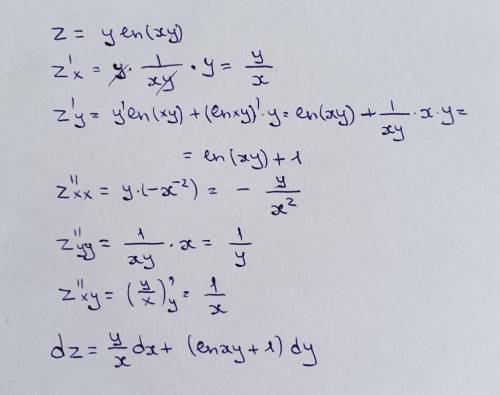 z = y ln(xy)
z'x = y · 1/xy · y = y/x
z'y = y' ln(xy) + (lnxy)' · y = ln(xy) + 1/xy · x · y =
= ln(xy) + 1
z''xx = y · (-x⁻²) = - y/x²
z''yy = 1/xy · x = 1/y
z''xy = (y/x)'y = 1/x
dz = y/x dx + (lnxy + 1) dy